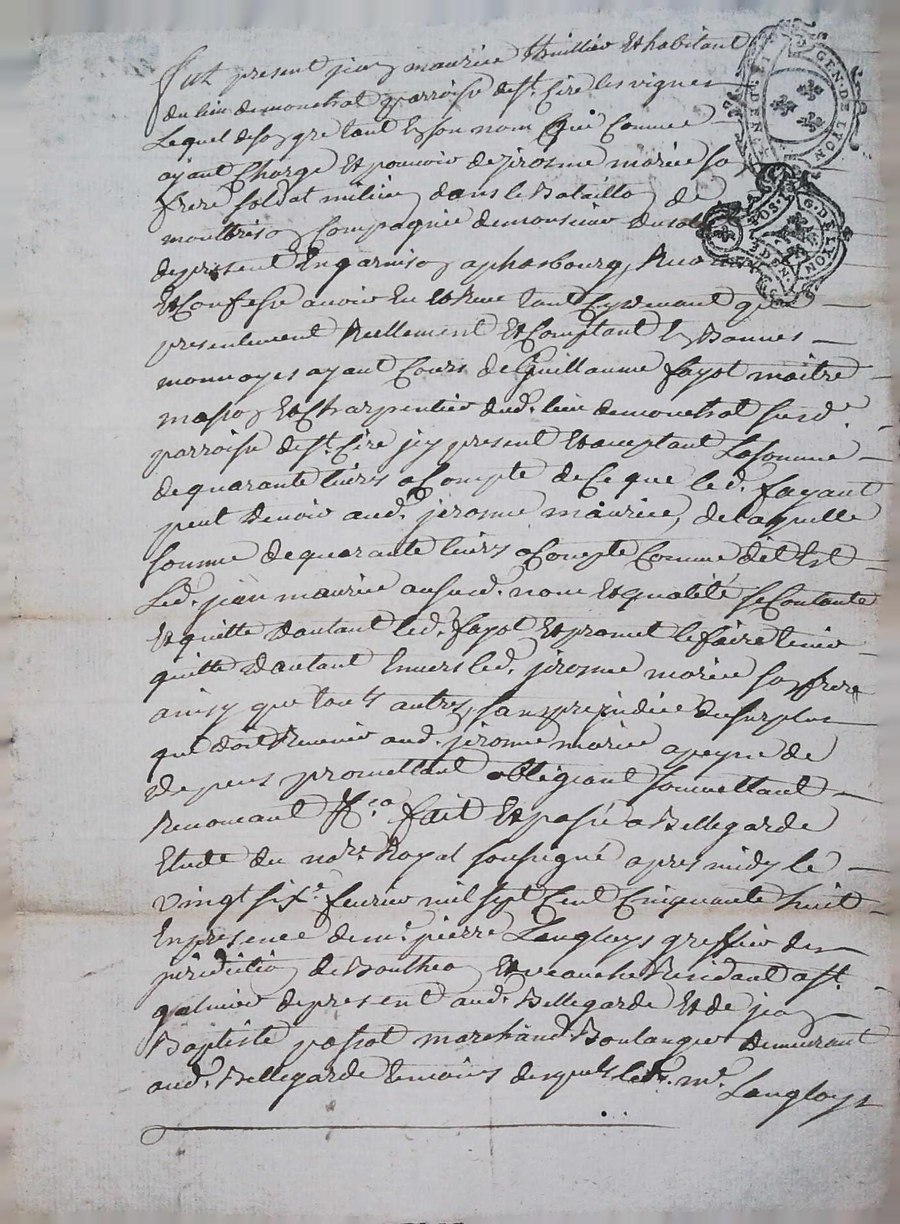 Fut present jean maurice thuillier Et habitant
du lieu de monchal parroisse de st. Cire les vignes
Lequel de son gre tant En son nom que Comme
ayant Charge Et pouvoir de jirosme morice so
frere soldat milicien dans le Bataillo de
montbrison Compagnie de monsieur
de present En garnison a phasbourg,
Et Confesse avoir Eu Et Receu tant Cy devant que
presentement Reellement Et Comptant En Bonnes
monnoyes ayant Cours de Guillaume fayot maitre
masson Et Charpentier dud. lieu de monchal susd.
parroisse de st. Cire jcy present Et acceptant La somme
de quarante livres a Compte de Ce que led. fayaut
peut Devoir aud. jirosme maurice, de laquelle
somme de quarante livres a Compte Comme dit Est
Led. jean maurice aususd. nom Et qualité se Contante
Et quitte Dautant led. fayot Et promet le faire tenir
quitte Dautant Envers led. jirosme morice son frere
ainsy que tous autres, sans prejudice du surplus
qui doit Revenir aud. jirosme morice a peyne de
Depens promettant obligeant soumettant
Renoncant &ca. fait Et passé a Bellegarde
Etude du nore. Royal soussigné apres midy le
vingt six. fevrier mil sept Cent Cinquante huit
En presence de mr. pierre Langloys greffier des
juridiction de Boutheo Et Residant a st.
galmier de present aud. Bellegarde Et de jean
Baptiste passot marchand Boulanger Demeurant
aud. Bellegarde temoins desquels led. mr. Langloys
GEN. DE LYON
G. DE LYON